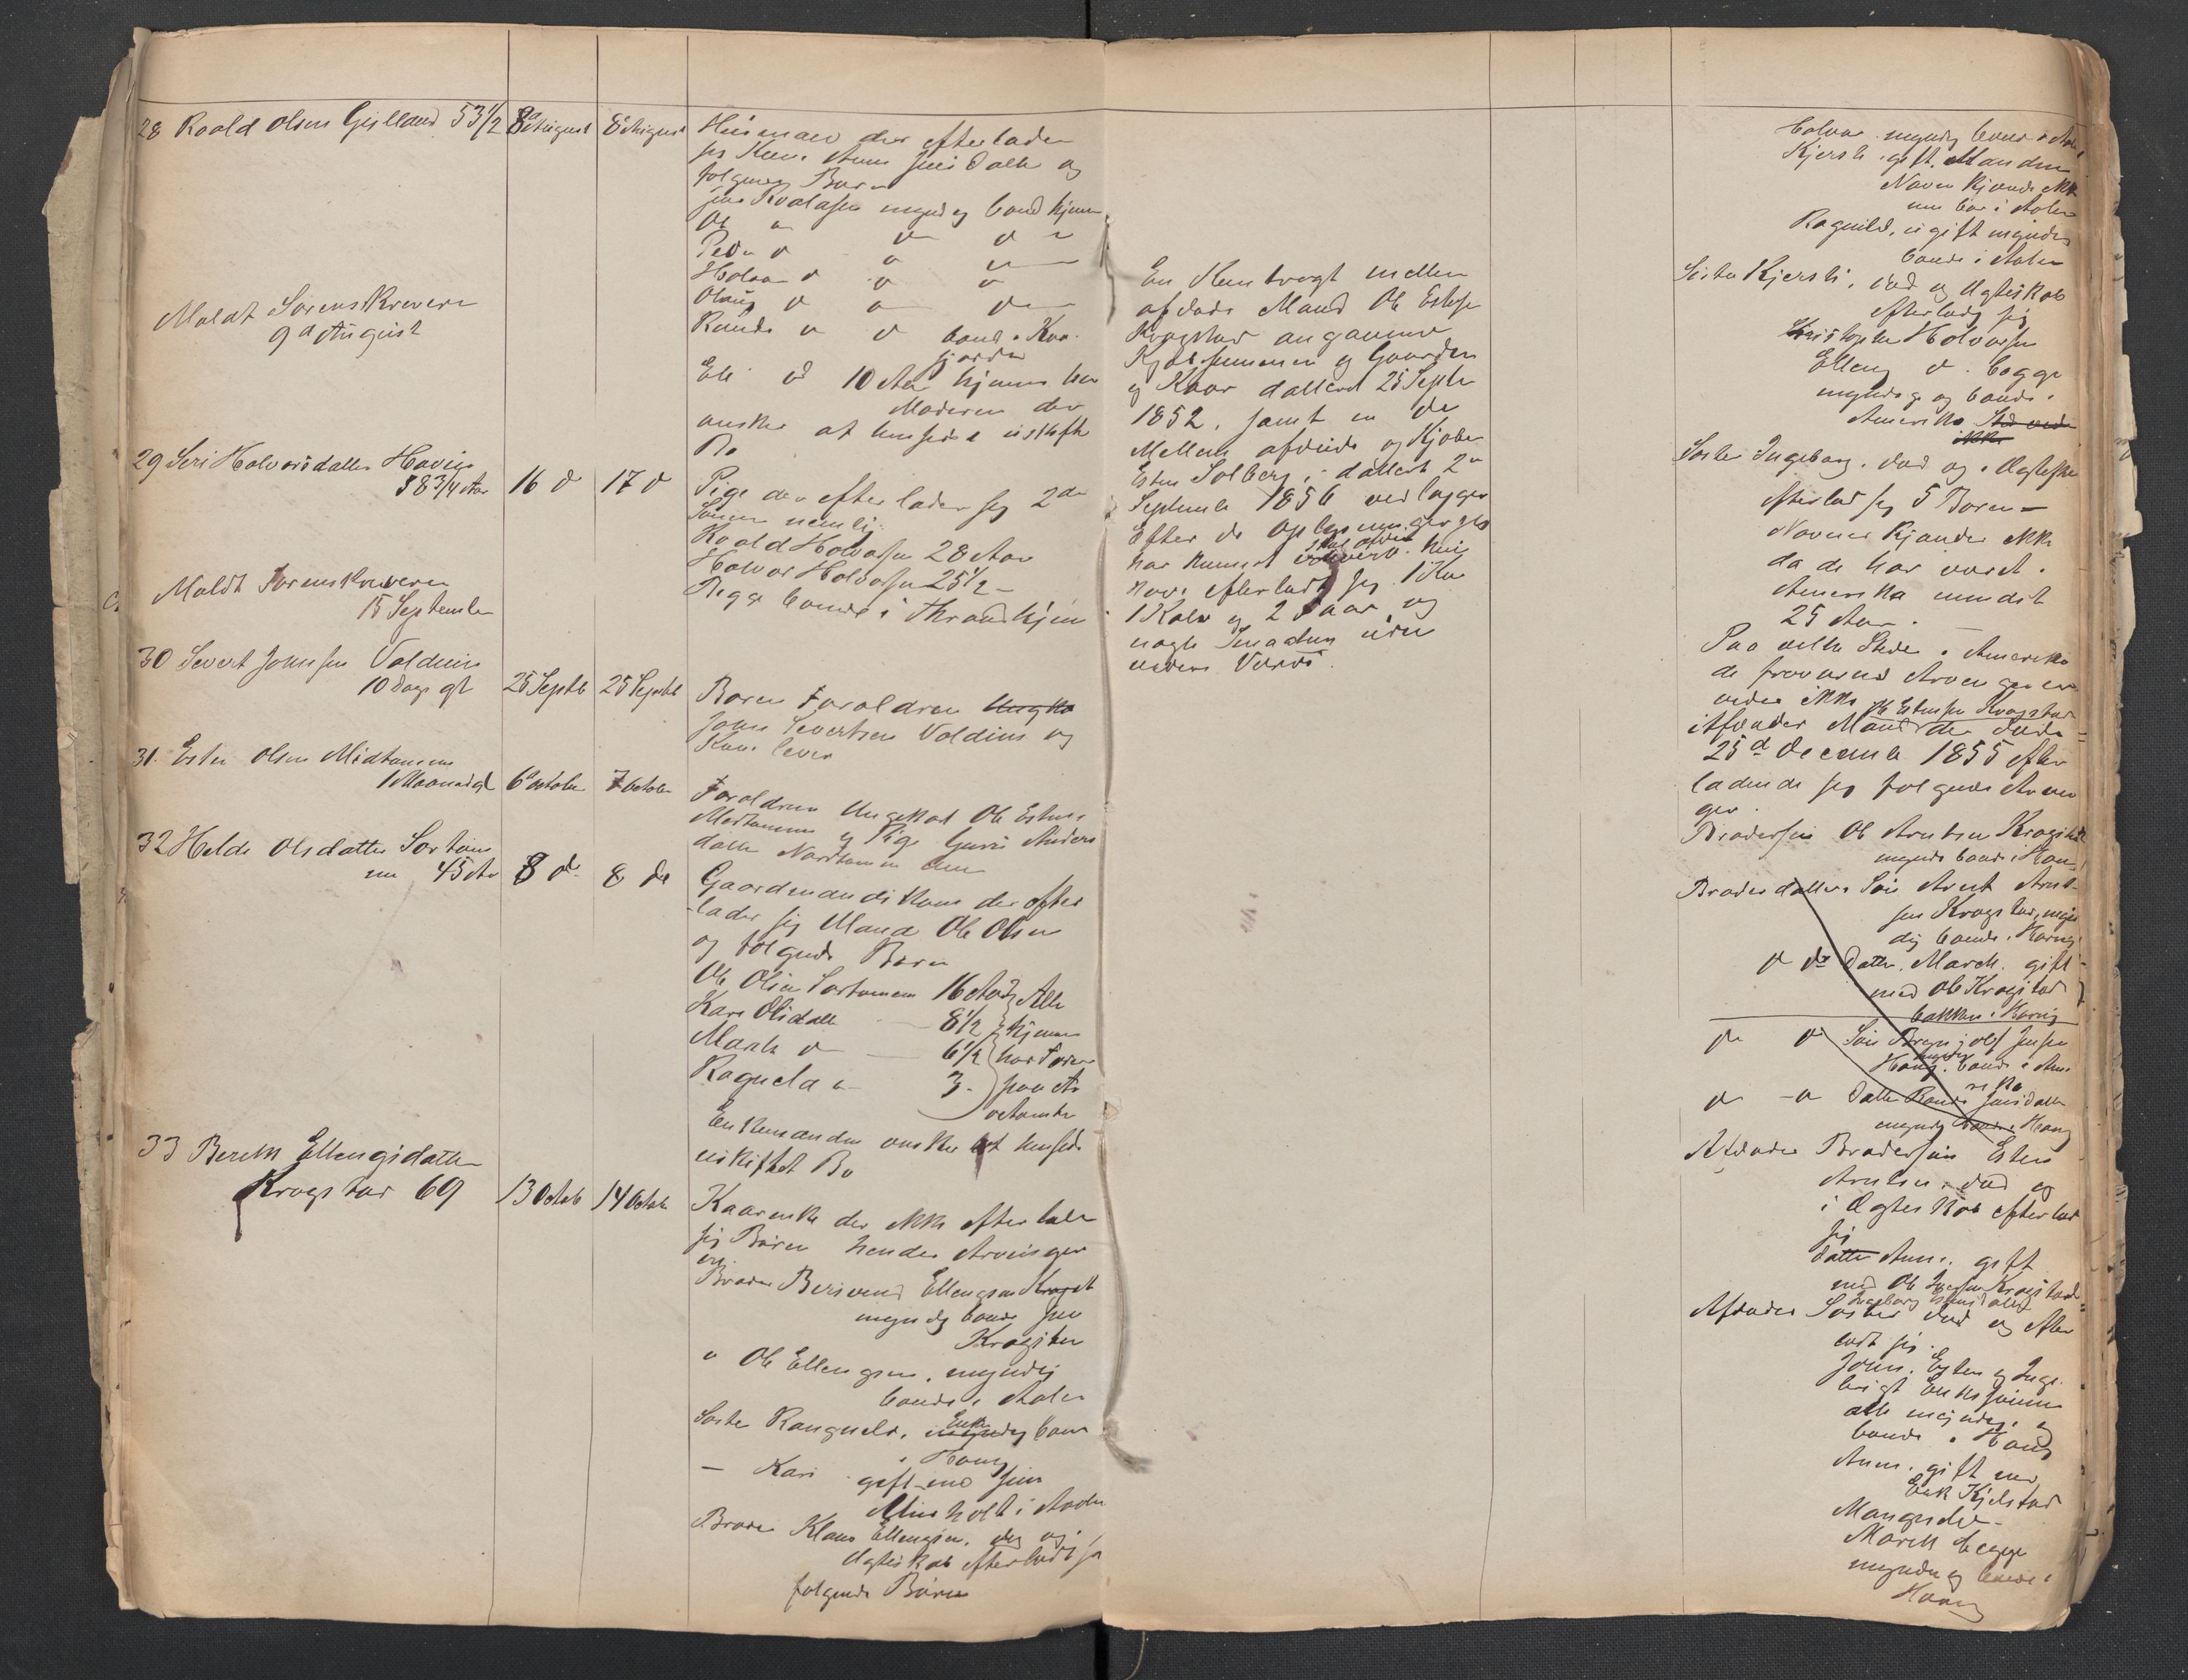 28 Roald Olsen Gjelland 53 1/2
8de August
8de August
Huusmand der efterlader
sig Kone Anne Jensdatter og
følgende Børn
Jens Roaldsen myndig boend hjemme
Ole
Peder d
Halvor d
Olaus d
Randi d boend i Kva
fjorden
Eli d 10 Aar hjemme hos
Moderen der
ønsker at hensidde i uskiftet
Bo
Meldt Sorenskriveren
9de August
29 Seri Halvorsdatter Havig
58 3/4 Aar
16 d
17 d
Pige der efterlader sig 2de
Sønner nemlig
Roald Halvorsen 28 Aar
Halvor Halvorsen 25 1/2 -
Begge boende i Throndhjem
Meldt Sorenskriveren
15 September
30 Severt Johnsen Voldeim
10 Dage gl
25 Septb
25 Septb
Børen Forældren
John Severtsen Voldeim og
Kone lever
31. Esten Olsen Midtømmen
1 Maaned gl
6 October
7 October
Forældrene Ungkarl Ole Estens.
Midtømmen og Pige Guru Anders
datter Nordtømmen
32 Helde Olsdatter Sørtøm
men 45 Aar
8 de
8 de
Gaardmandskone der efter
lader sig Mand Ole Olsen
og følgende Børn
Ole Olsen Sørtømmen 16 Aar Alle
Kari Olsdatter 8 1/2 hjemme
Marth d 6 1/2 hos Faderen
Ragnela d 3.
Enkemanden ønsker at hensidde
uskiftet Bo
33 Bereth Ellengsdatter
Krogstad 69
13 Octob
14 Octob
Kaarenke der ikke efterlader
sig Børn hendes Arvinger
er
Broder Berivend Ellengsen Krogst
myndig boende paa
Krogstad
" Ole Ellengsen, myndig
boende i Aalen
Søster Rangnela, Enke myndig boend
i Haug
— Kari gift med Jens
i Aalen
Broder Klaus Ellengsen, død og i
Ægteskab efterladt sig
følgende Børn
En Kontragt mellem
afdøde Mand Ole Estensen
Krogstad angaaende
Kjøbesummen og Gaarden
og Kaar datteret 25 Septbr
1852, samt en do
Mellem afdøde og Kjøber
Esten Solberg, datteret 2de
September 1856 vedlægges
Efter de Oplysninger jeg
har kunnet skal afdøde
have efterladt sig 1 Ko
1 Kalv og 2 Faar og
nogle Smaating uden
videre Værdi.
Halvor myndig boend i Aalen
Kjersti, gift, Mandens
Navn kjendes ikke
men bor i Aalen
Ragnild, ugift myndig
boende i Aalen
Søster Kjersti, død og i Ægteskab
efterladt sig
Kristopher Halvorsen
Elleng d. begge
myndige og boende i
Amerika
Søster Ingeborg, død og i Ægteskab
efterlod sig 5 Børen —
Navnene kjendes ikke
da de har været i
Amerika mindst
25 Aar. —
Paa hvilke Steder i Amerika
de fraværende Arvinger er
vides ikke
Afdødes Mand Ole Estensen Krogstad der døde
25de December 1855 efter
ladende sig følgende Arvin
ger.
Brodersøn Ole Arntsen Krogstad
myndig boende i Haug
Broderdatters Søn Arnt Arnt-
sen Krogstad, myn
dig boende i Haug
d do Datter. Mareth. gift
med Ole Krogstad
bakken i Haug
d d Søn Jensen
Haug, myndig boende i Ame
rika
d d Datter Randi Jensdatter
myndig boende i Haug
Afdødes Brodersøn Esten
Arntsen, død og
i Ægteskab efterlod
sig
Datter Anne, gift
med Ole Krogstad
Afdødes Søster Ingeborg Estensdatter død og efter
ladt sig.
John, Esten og Inge
brigt Enkssønner
alle myndige og
boende i Haug
Anne, gift med
Erik Kjelstad
Mangnild -
Mareth begge
myndig og boende i
Haug